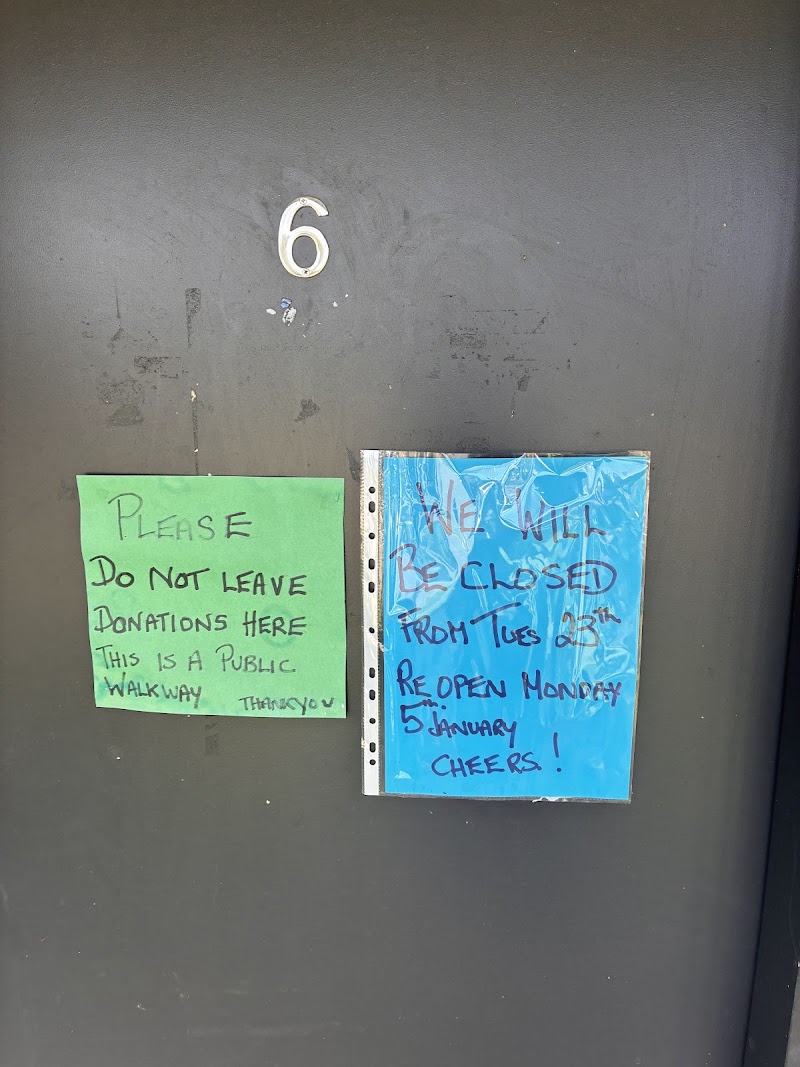 6
PLEASE
DO NOT LEAVE
DONATIONS HERE
THIS IS A PUBLIC
WALKWAY THANKYOU
WE WILL
BE CLOSED
FROM TUES 23th
RE OPEN MONDAY
5th JANUARY
CHEERS!